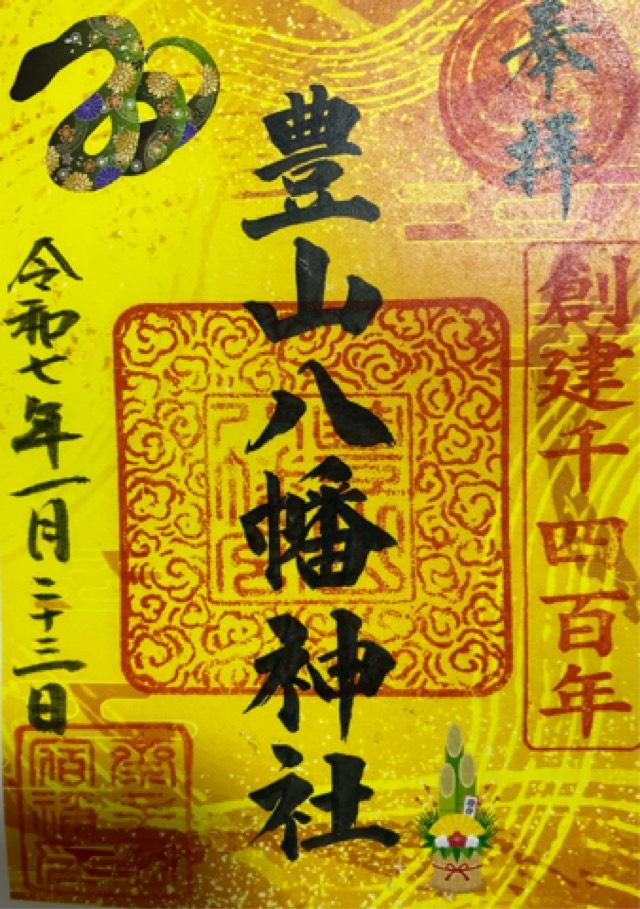 奉拝
創建千四百年
豊山八幡神社
令和七年一月二十三日